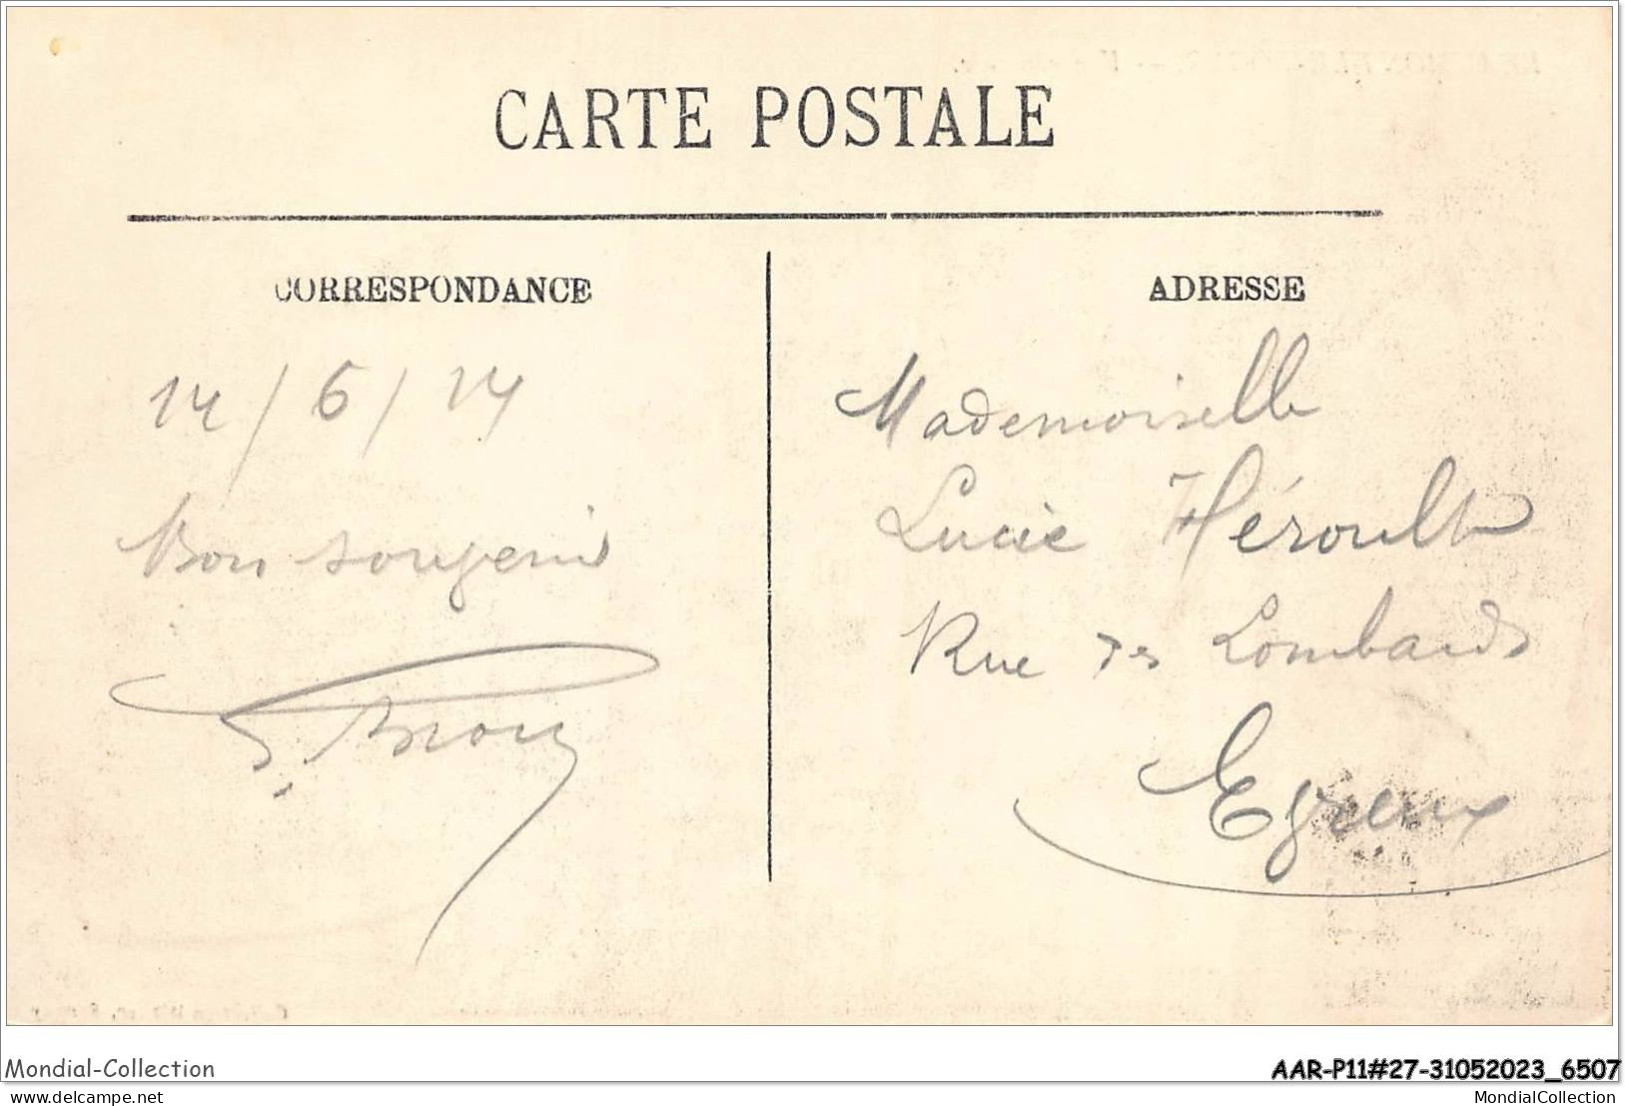 CARTE POSTALE
CORRESPONDANCE
14/6/14
Bon souvenir
ADRESSE
Mademoiselle
Lucie Héroult
Rue des Lombards
Mondial-Collection
AAR-P11#27-31052023_6507
delcampe.net
MondialCollection